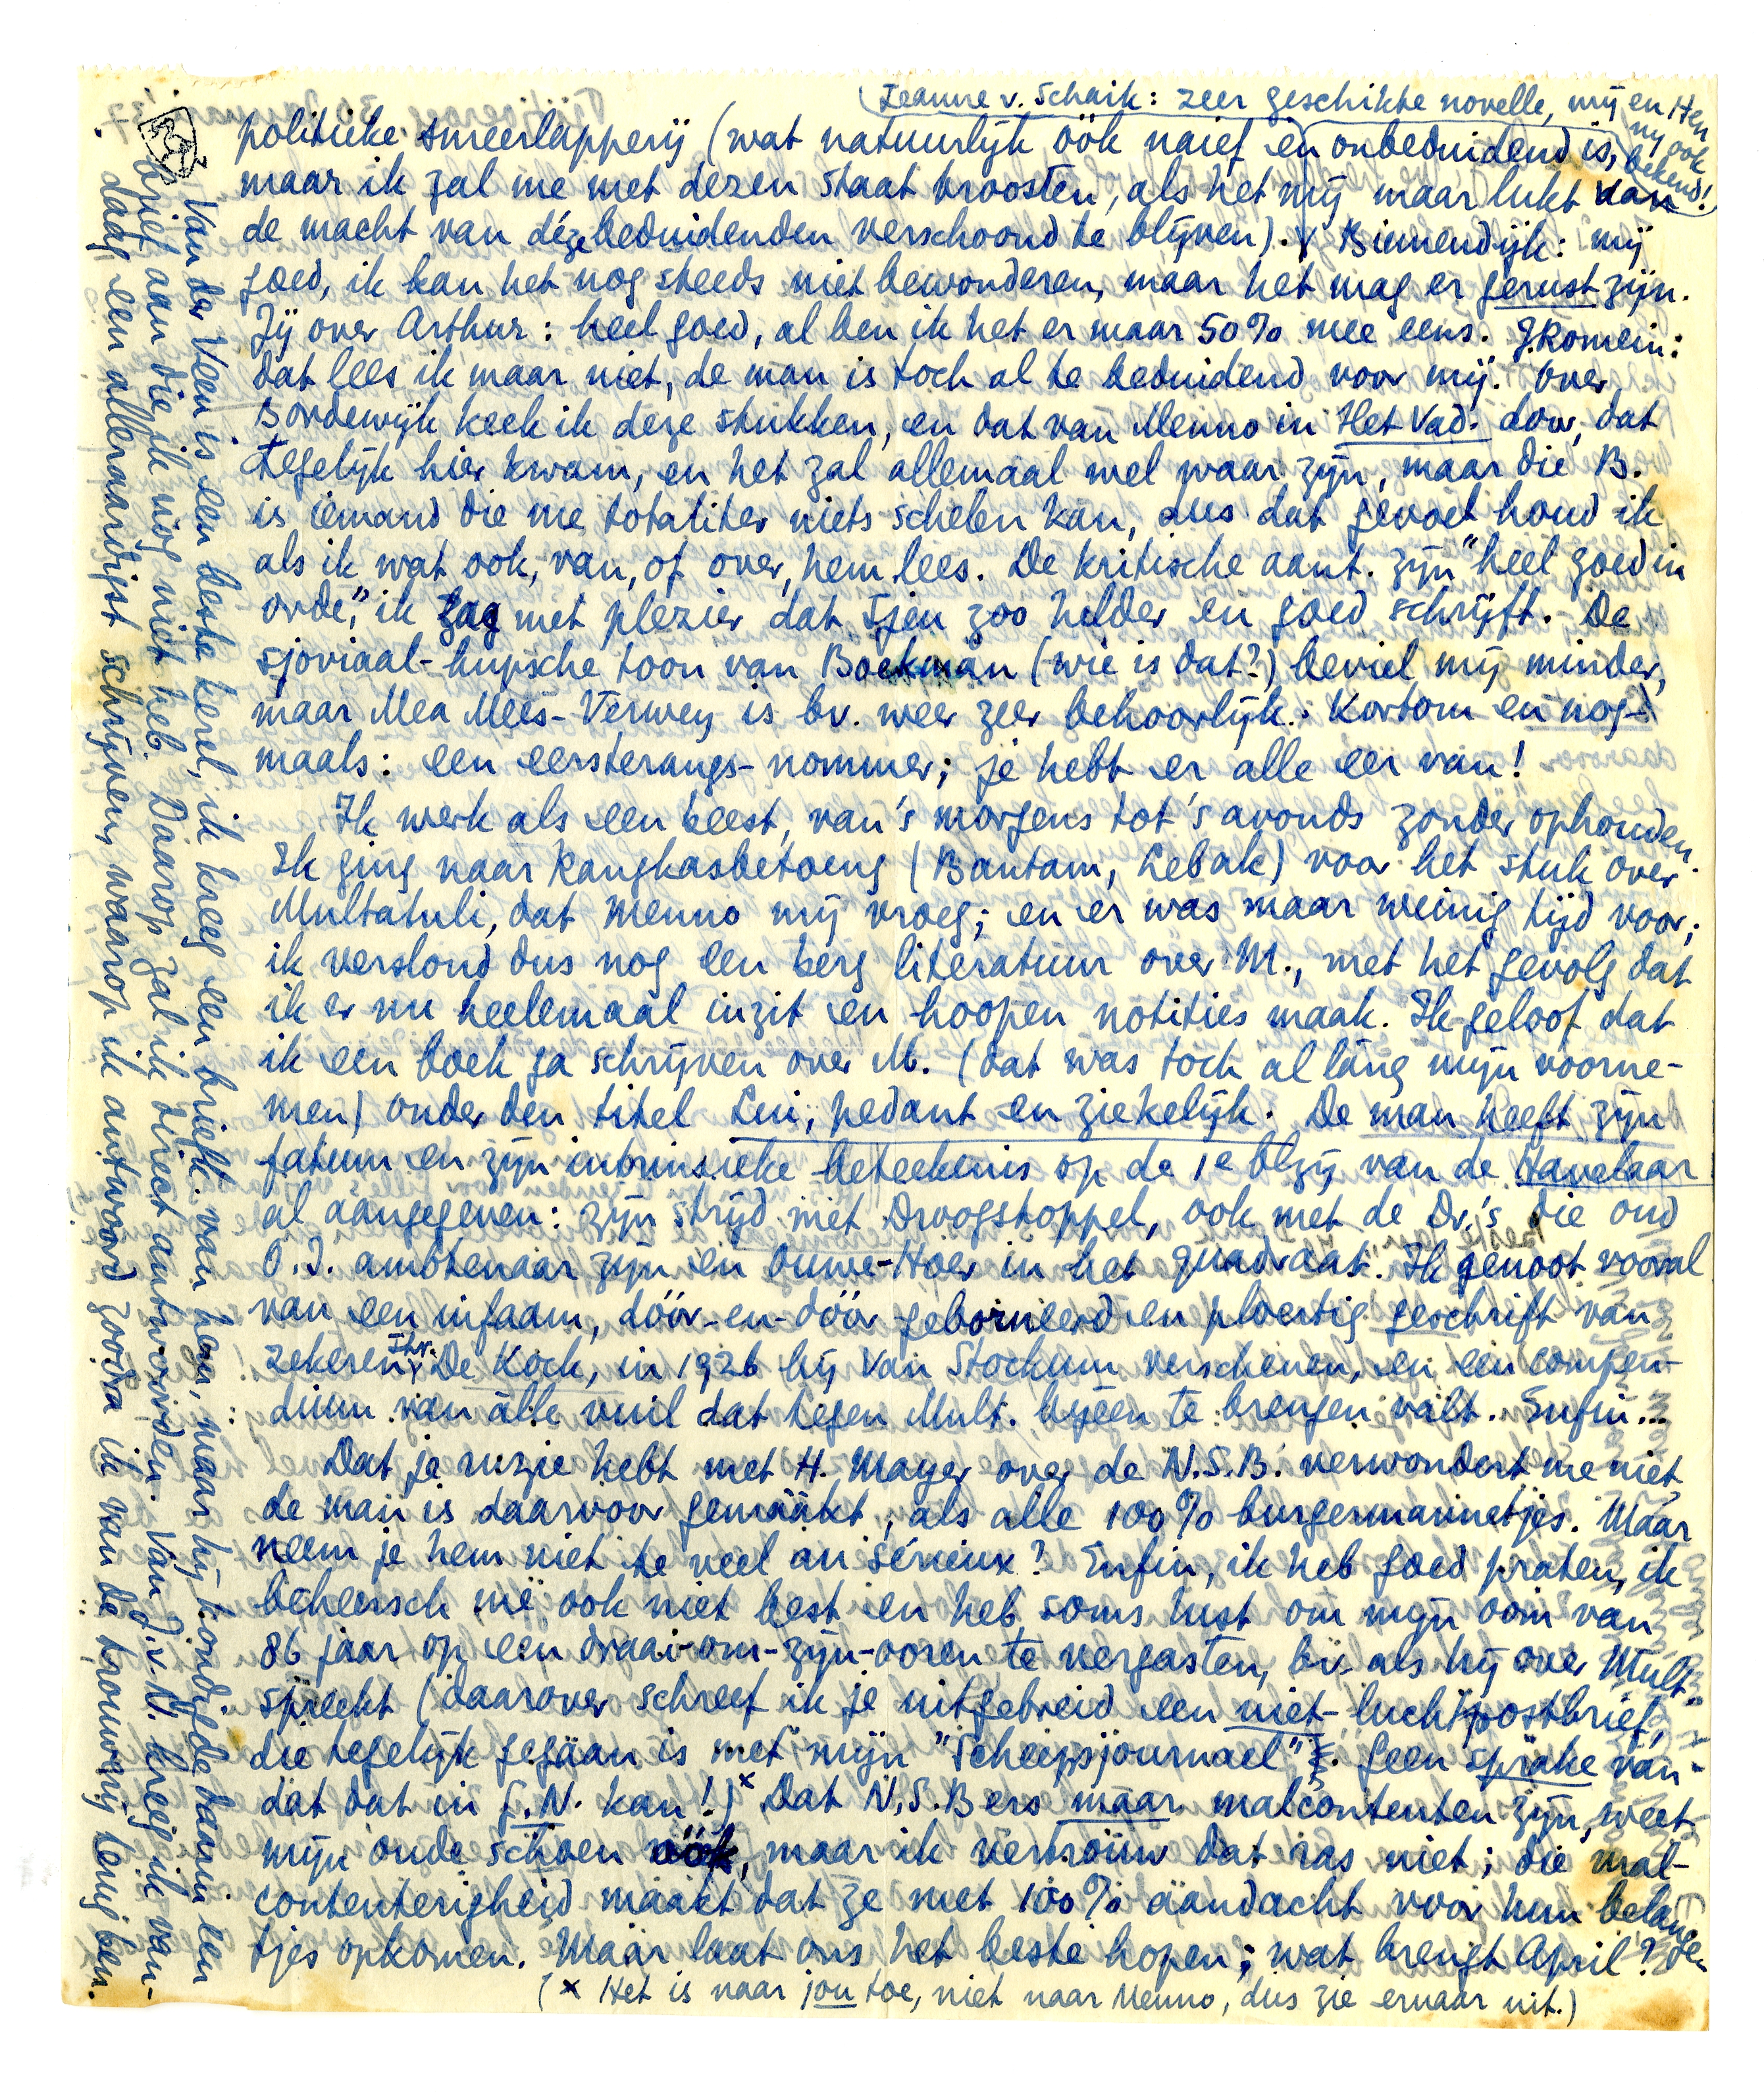 (Jeanne v. Schaik: zeer geschikte novelle, mij en Hen
ny ook
bekend!)
politieke smeerlapperij (wat natuurlijk óók naief en onbeduidend is,
maar ik zal me met dezen staat troosten, als het mij maar lukt van
de macht van déze beduidenden verschoond te blijven). Binnendijk: mij
goed, ik kan het nog steeds niet bewonderen, maar het mag er gerust zijn.
Jij over Arthur: heel goed, al ben ik het er maar 50% mee eens. J. Romein:
dat lees ik maar niet, de man is toch al te beduidend voor mij. Over
Bordewijk keek ik deze stukken, en dat van Menno in Het Vad. door, dat
tegelijk hier kwam, en het zal allemaal wel waar zijn, maar die B.
is iemand die me totaliter niets schelen kan, dus dat gevoel houd ik
als ik, wat ook, van, of over, hem lees. De kritische aant. zijn "heel goed in
orde", ik zag met plezier dat Tjen zoo helder en goed schrijft. De
sjoviaal-hupsche toon van Boekman (wie is dat?) beviel mij minder,
maar Mea Mees-Verwey is bv. weer zeer behoorlijk. Kortom en nog-
maals: een eersterangs-nommer; je hebt er alle eer van!
Ik werk als een beest, van 's morgens tot 's avonds zonder ophouden.
Ik ging naar Rangkasbetoeng (Bantam, Lebak) voor het stuk over
Multatuli, dat Menno mij vroeg; en er was maar weinig tijd voor;
ik verslond dus nog een berg literatuur over M., met het gevolg dat
ik er nu heelemaal inzit en hoopen notities maak. Ik geloof dat
ik een boek ga schrijven over M. (dat was toch al lang mijn voorne-
men) onder den titel Lui, pedant en ziekelijk. De man heeft zijn
fatum en zijn intrinsieke beteekenis op de 1e blzij van de Havelaar
al aangegeven: zijn strijd met Droogstoppel, ook met de Dr.'s die oud
O.I. ambtenaar zijn en Ouwe-Hoer in het quadraat. Ik genoot vooral
van een infaam, dóór-en-dóór geborneerd en ploertig geschrift van
zekeren Jhr. De Kock, in 1926 bij Van Stockum verschenen, en een compen-
dium van álle vuil dat tegen Mult. bijeen te brengen valt. Enfin...
Dat je ruzie hebt met H. Mayer over de N.S.B. verwondert me niet,
de man is daarvoor gemáákt, als alle 100% burgermannetjes. Maar
neem je hem niet te veel au sérieux? Enfin, ik heb goed praten, ik
beheersch me ook niet best en heb soms lust om mijn oom van
86 jaar op een draai-om-zijn-ooren te vergasten, bv. als hij over Mult.
spreekt (daarover schreef ik je uitgebreid een niet-luchtpostbrief,
die tegelijk gegaan is met mijn "Scheepsjournael". Geen sprake van
dat dat in G.N. kan!)× Dat N.S.Bers maar malcontenten zijn, weet
mijn oude schoen óók, maar ik vertrouw dat ras niet; die mal-
contenterigheid maakt dat ze met 100% áandacht voor hun belange-
tjes opkomen. Maar laat ons het beste hopen; wat brengt April? De
(× Het is naar jou toe, niet naar Menno, dus zie ernaar uit.)
Van der Veen is een beste kerel, ik kreeg een briefk. van hem, maar hij kondigde daarin een
brief aan die ik nog niet heb. Daarop zal ik direct antwoorden. Van J.v.N. kreeg ik van-
daag een alleraardigst schrijven, waarop ik antwoord zoodra ik van de brouwerij terug ben.